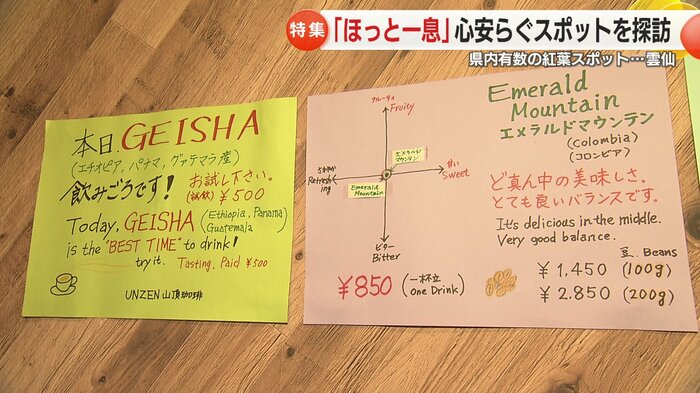 特集
「ほっと一息」心安らぐスポットを探訪
県内有数の紅葉スポット…雲仙
本日、GEISHA
(エチオピア、パナマ、グァテマラ産)
飲みごろです!
お試し下さい。
(試飲) ¥500
Today, GEISHA (Ethiopia, Panama)
Guatemala
is the "BEST TIME" to drink!
try it. Tasting, Paid ¥500
UNZEN山頂珈琲
フルーティ
Fruity
さわやか
Refreshing
甘い
Sweet
エメラルド
マウンテン
Emerald
Mountain
ビター
Bitter
¥850 (一杯立
one Drink)
Emerald
Mountain
エメラルドマウンテン
(colombia)
(コロンビア)
ど真ん中の美味しさ。
とても良いバランスです。
It's delicious in the middle.
Very good balance.
豆. Beans
¥1,450 (100g)
¥2.850 (200g)